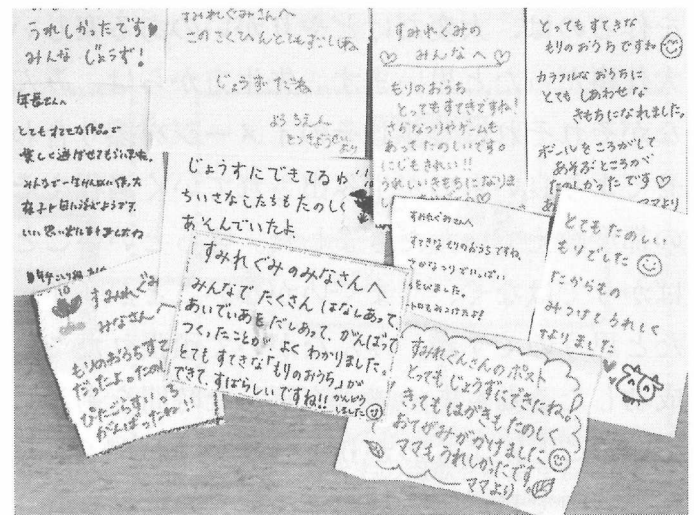 うれしかったです♥
みんな じょうず!
すみれぐみさんへ
このさくひんとてもすごいね
じょうずだね
ようちえん
より
すみれぐみの
♡ みんなへ ♡
もりのおうち
とってもすてきですね!
さかなつりやゲームも
あってたのしいです。
にじもきれい!!
うれしいきもちになりま
とってもすてきな
もりのおうちですね
カラフルなおうちに
とても しあわせな
きもちになれました。
ボールをころがして
あそぶところが
たのしかったです♡
ママより
年長さんへ
とてもすてきな作品で
楽しく遊ばせてもらいました。
みんなで一生けんめい作った
様子が目に浮ぶようです。
じょうずにできてるね
ちいさなこたちもたのしく
あそんでいたよ
すみれぐみさんへ
すてきなもりのおうちですね。
さかなつりでいっぱい
あそびました。
トトロもみつけたよ!
とてもたのしい
もりでした
たからもの
みつけてうれしく
なりました
すみれぐみ
みなさんへ
もりのおうちすて
だったよ。たのし
ぴたごらすいっち
がんばったね!!
すみれぐみのみなさんへ
みんなで たくさん はなしあって、
あいであをだしあって、がんばって
つくったことが、よく わかりました。
とても すてきな「もりのおうち」が
できて、すばらしいですね!! かんどう
しました
すみれぐみさんのポスト
とってもじょうずにできたね。
きってもはがきもたのしく
おてがみがかけました
ママもうれしかったです。
ママより